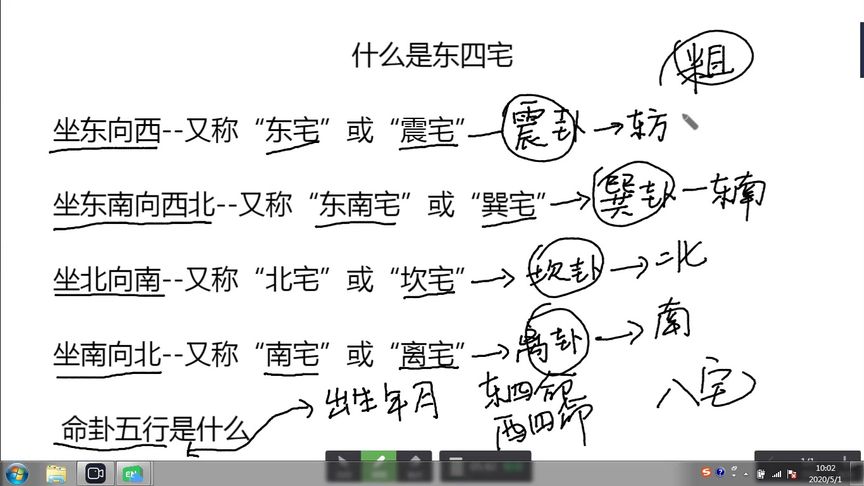 什么是东四宅
粗
坐东向西--又称“东宅”或“震宅” 震卦 东方
坐东南向西北--又称“东南宅”或“巽宅” 巽卦 东南
坐北向南--又称“北宅”或“坎宅” 坎卦 北
坐南向北--又称“南宅”或“离宅” 离卦 南
命卦五行是什么 出生年月 东四命 八宅
西四命
10:02
2020/5/1